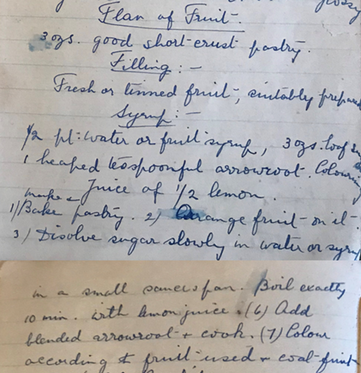 glossy
Flan of Fruit.
3 ozs. good short-crust pastry.
Filling :-
Fresh or tinned fruit, suitably prepared
Syrup :-
1/2 pt: water or fruit syrup, 3 ozs. loaf
1 heaped teaspoonful arrowroot. Colour
Juice of 1/2 lemon.
make &
1) Bake pastry. 2) Arrange fruit on it.
3) Disolve sugar slowly in water or syrup
in a small saucepan. Boil exactly
10 min. with lemon juice. (6) Add
blended arrowroot + cook. (7) Colour
according to fruit used + coat fruit